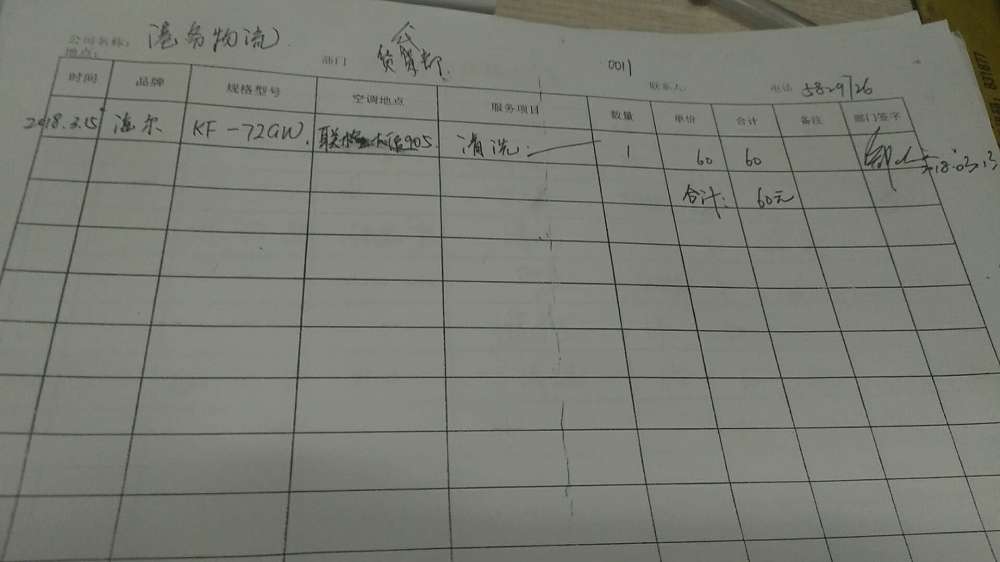 公司名称: 港务物流 部门 货算部 会 0011 联系人: 电话 5829726
地点:
时间 品牌 规格型号 空调地点 服务项目 数量 单价 合计 备注 部门签字
2018.3.15 海尔 KF-72GW 联检 905 清洗 1 60 60 2018.03.13
合计: 60元